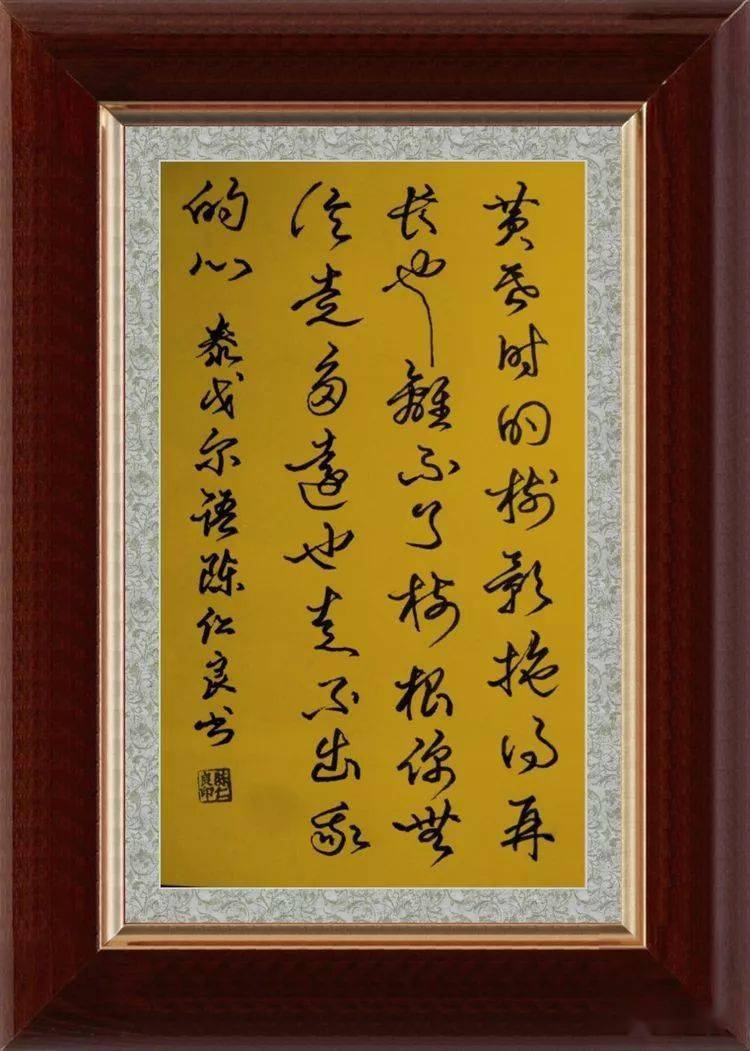 黄昏时的树影拖得再
长也離不了树根你無
论走多遠也走不出我
的心 泰戈尔語陈仁良书
陈仁良印